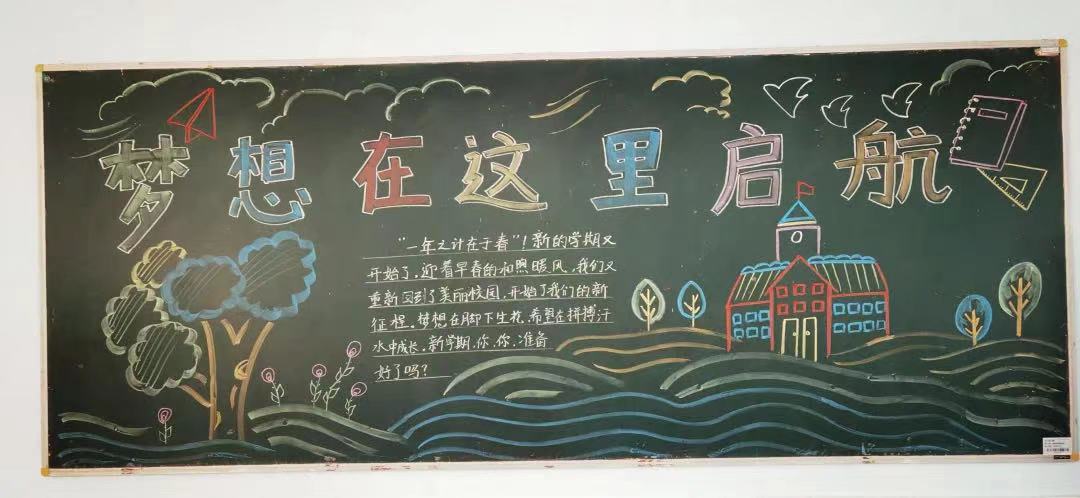 梦想在这里启航
“一年之计在于春”！新的学期又
开始了，迎着早春的和煦暖风，我们又
重新回到了美丽校园，开始了我们的新
征程。梦想在脚下生花，希望在拼搏汗
水中成长。新学期，你，你，准备
好了吗？